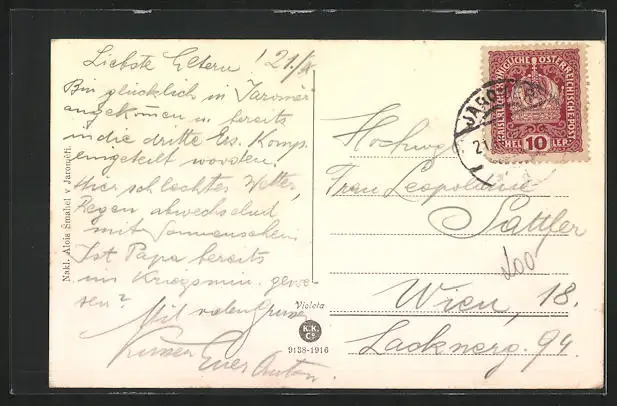 Liebste Eltern! 21./
Bin glücklich in Jaroměř
angekommen u. bereits
in die dritte Ers. Komp.
eingeteilt worden.
Hier schlechtes Wetter,
Regen, abwechselnd
mit Sonnenschein.
Ist Papa bereits
im Kriegsmin. gewe-
sen? Mit vielen Grüßen
Küssen Euer Anton.
Nakl. Alois Šmahel v Jaroměři.
Violeta
K.K.
Co
9138-1916
KAISERLICHE KÖNIGLICHE ÖSTERREICHISCHE POST
HEL 10 LER
JARO
21
Hochwg.
Frau Leopoldine
Sattler
Wien, 18.
Lacknerg. 94.